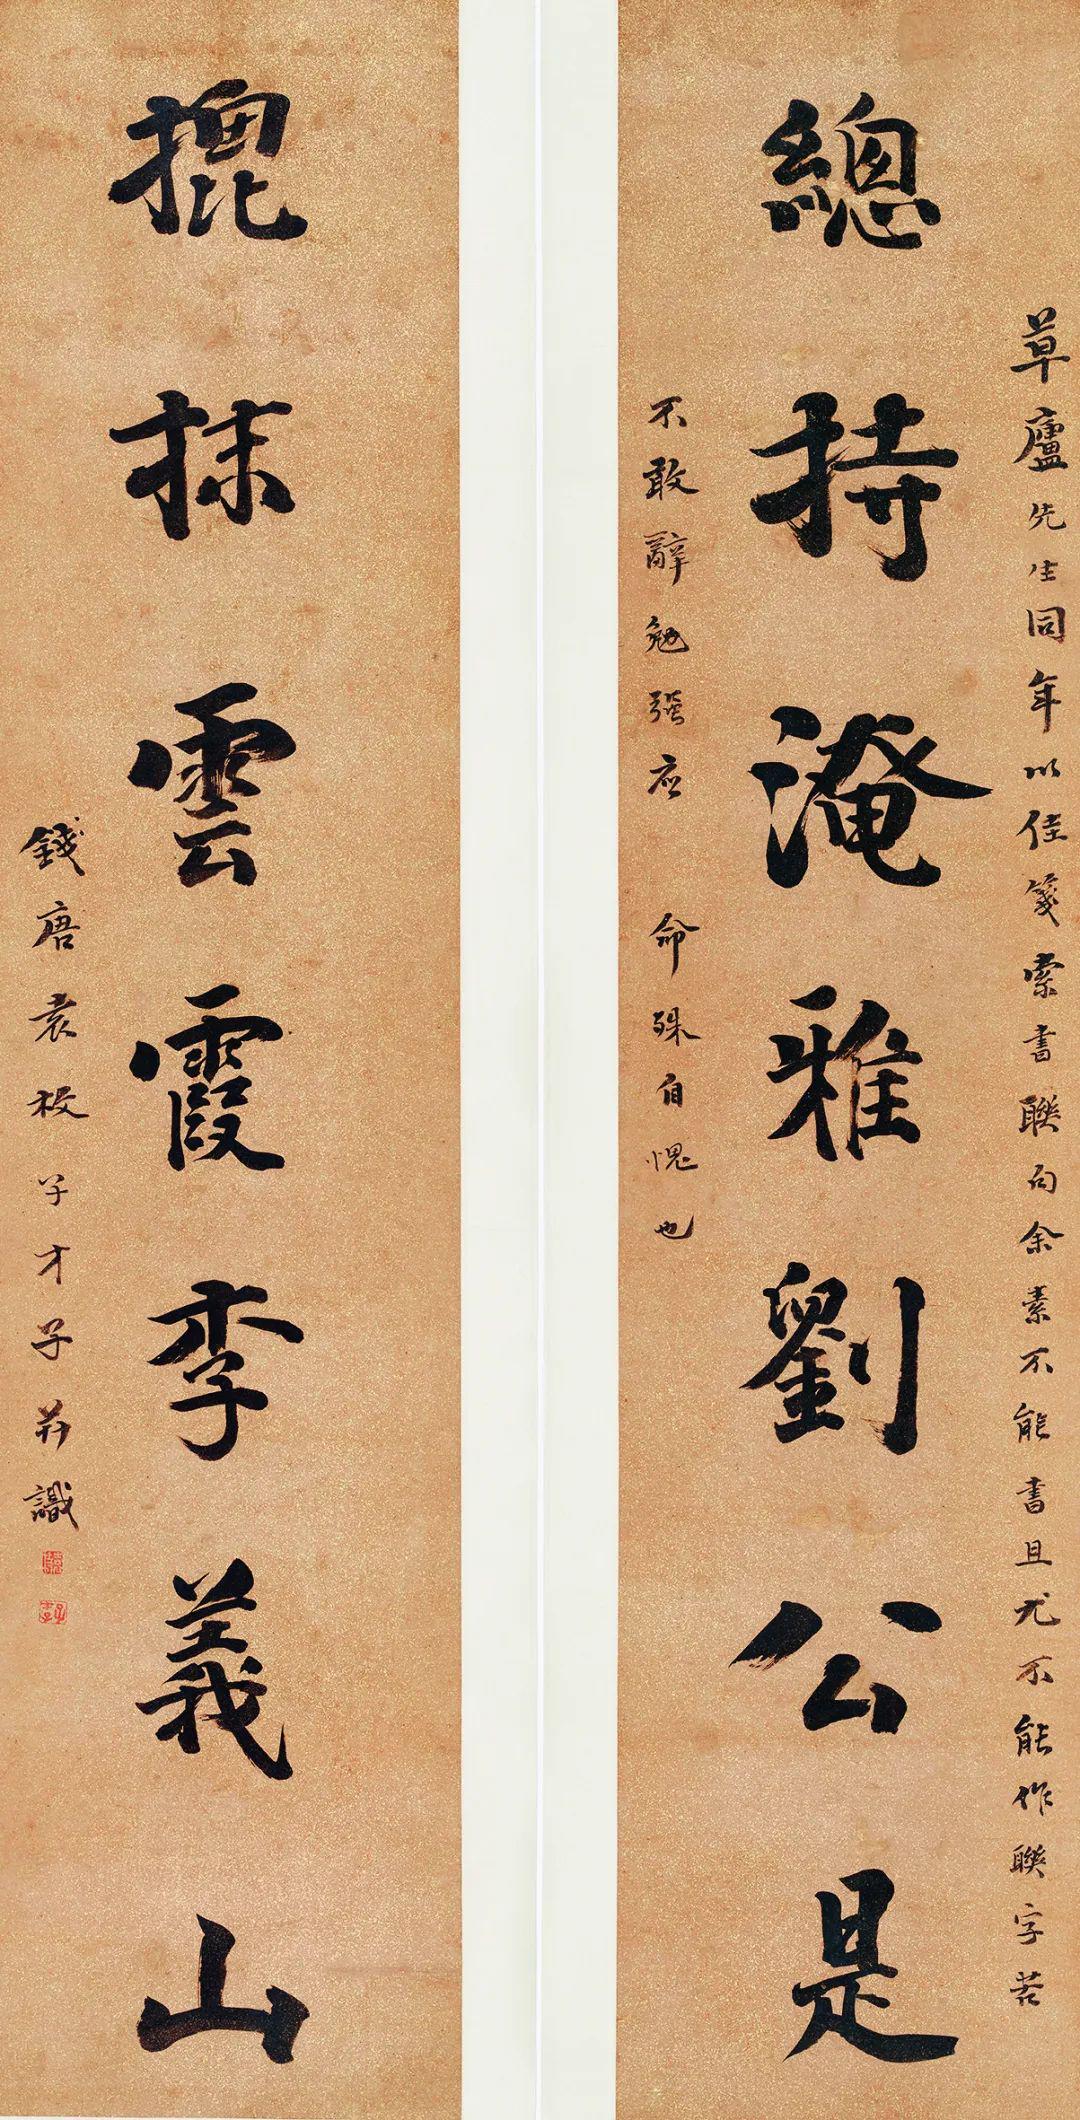 總持淹雅劉公是
草廬先生同年以佳箋索書聯句余素不能書且尤不能作聯字苦
不敢辭勉強應 命殊自愧也
㨽抹雲霞李義山
錢唐袁枚子才子并識